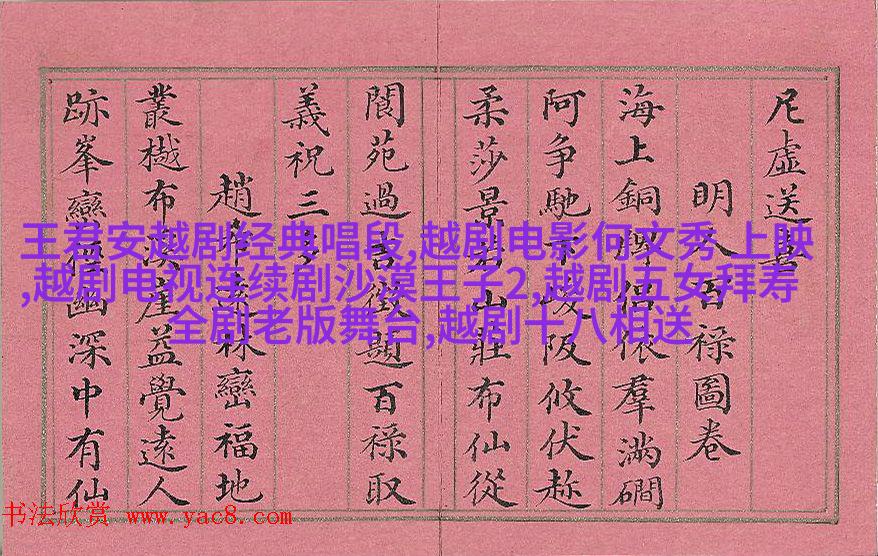 虛送
明人百祿圖卷
海上銅侶依羣滿磵
阿争馳下峻阪攸伏
柔莎景山莊布仙從
閬苑過徴題百祿取
義祝三多
趙林巒福地
叢樾布崖益覺遠人
跡峯巒幽深中有仙
王君安越剧经典唱段,越剧电影何文秀 上映
,越剧电视连续剧沙漠王子2,越剧五女拜寿
全剧老版舞台,越剧十八相送
书法欣赏 www.yac8.com